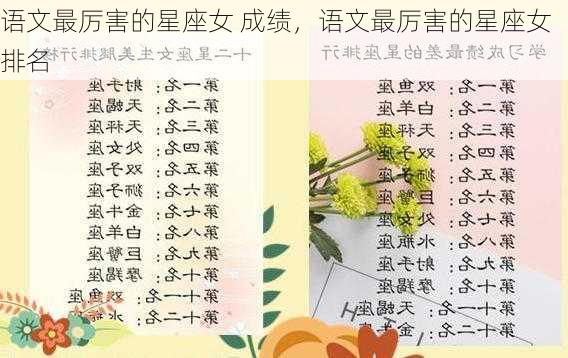 语文最厉害的星座女 成绩，语文最厉害的星座女
排名
十二星座女生美腿排行榜
第一名：射手座
第二名：天蝎座
第三名：天秤座
第四名：处女座
第五名：双子座
第六名：狮子座
第七名：金牛座
第八名：白羊座
第九名：巨蟹座
第十名：摩羯座
第十一名：双鱼座
第十二名：水瓶座
学习成绩最差的星座排行
第一名：双鱼座
第二名：白羊座
第三名：天秤座
第四名：双子座
第五名：狮子座
第六名：巨蟹座
第七名：处女座
第八名：水瓶座
第九名：射手座
第十名：摩羯座
第十一名：天蝎座
第十二名：金牛座